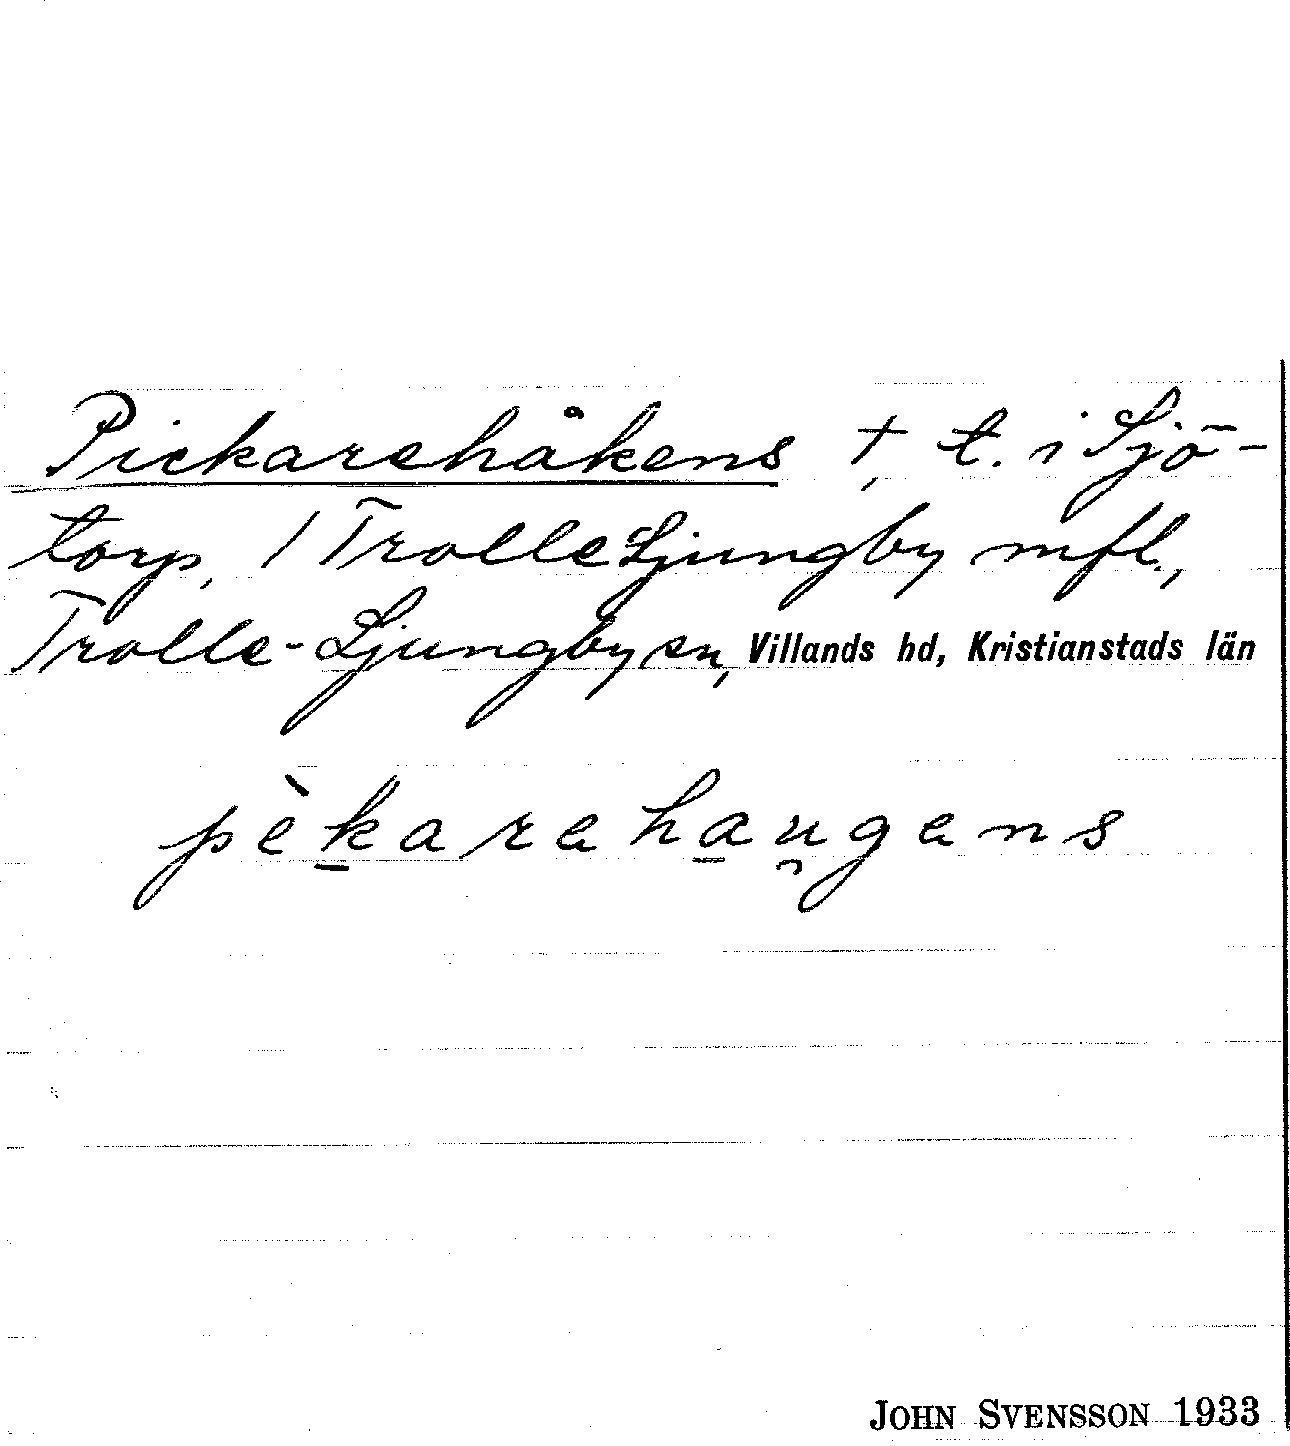 Pickarehåkens †, t. i Sjö-
torp, 1 Trolle Ljungby mfl.,
Trolle-Ljungby sn, Villands hd, Kristianstads län
pèk̠areha̠u̯gens
JOHN SVENSSON 1933